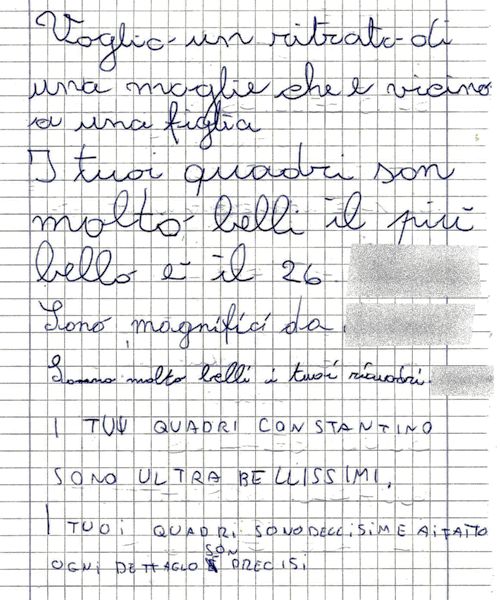 Voglio un ritrato di
una moglie che è vicino
a una figlia
I tuoi quadri son
molto belli il più
bello è il 26
Sono magnifici da
Sonno molto belli i tuoi riquadri
I TUI QUADRI CONSTANTINO
SONO ULTRA BELLISSIMI.
I TUOI QUADRI SONO BELLISIMI E AI FATTO
OGNI DETTAGLO SON PRECISI